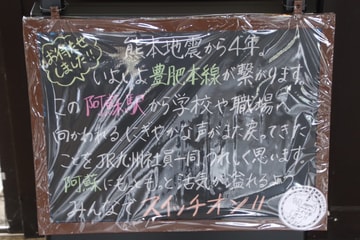 お待たせしました!
熊本地震から4年、
いよいよ豊肥本線が繋がります
この阿蘇駅から学校や職場へ
向かわれるにぎやかな声がまた戻ってきた
ことをJR九州社員一同うれしく思います。
阿蘇にもっともっと活気が溢れるよう
みんなでスイッチオン!!